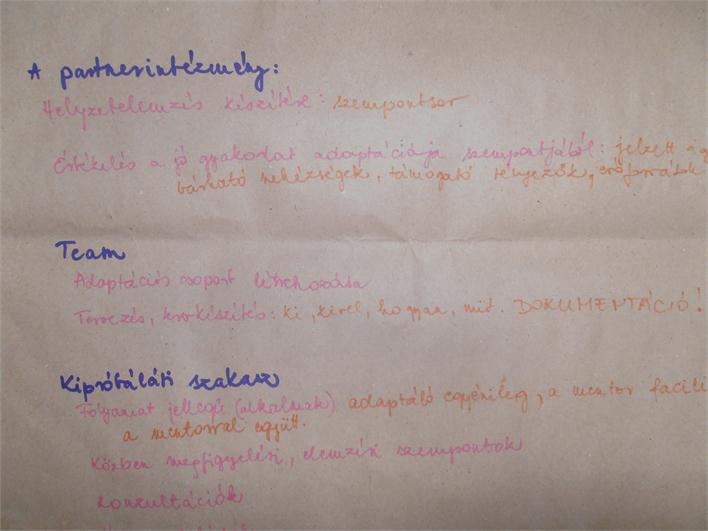 A partnerintézmény:
Helyzetelemzés készítése: szempontsor
Értékelés a jó gyakorlat adaptációja szempontjából: jelzett
várható nehézségek, támogató tényezők, erőforrások
Team
Adaptációs csoport létrehozása
Tervezés, ki, kivel, hogyan, mit. DOKUMENTÁCIÓ!
Kipróbálási szakasz
Folyamat jellegű (alkalmak) adaptáló egyénileg, a mentor facili
a mentorral együtt.
Közben megfigyelési, elemzési szempontok
Konzultációk